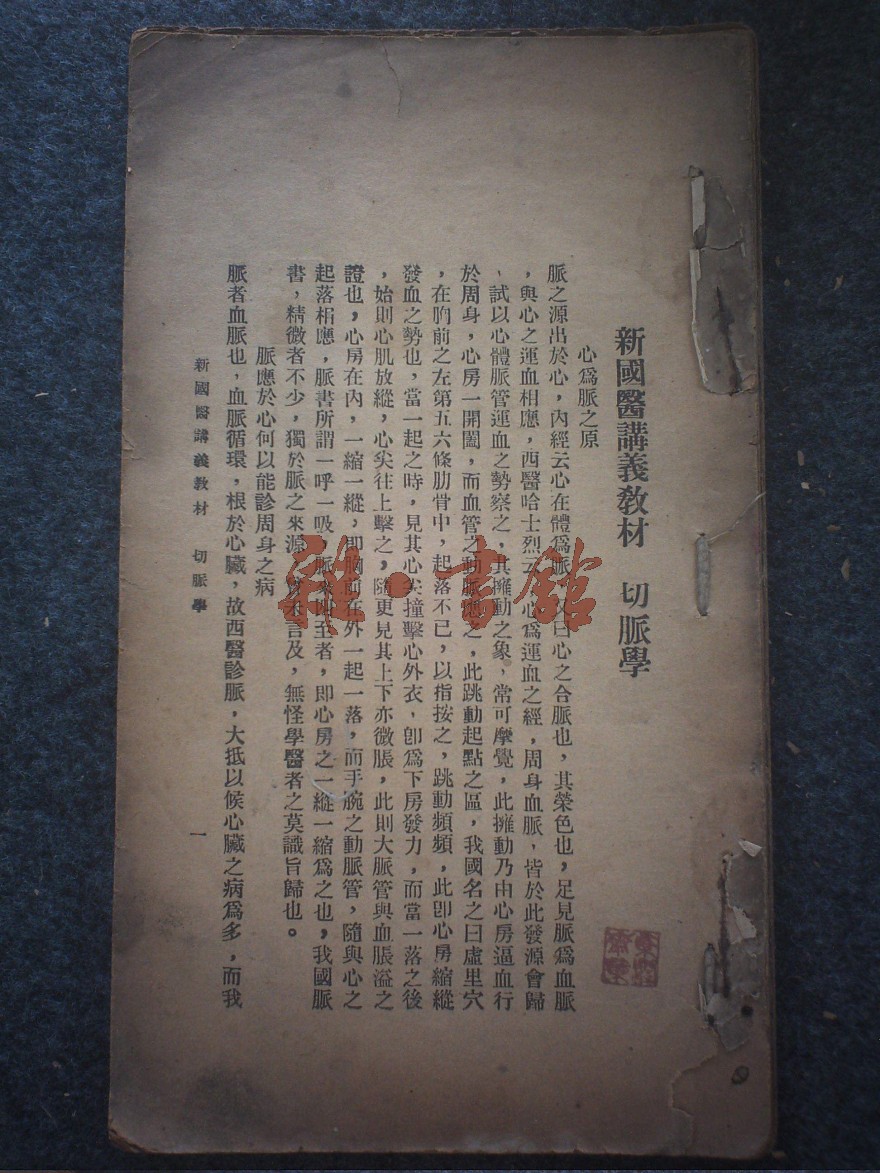 新國醫講義教材　切脈學
心爲脈之原
脈之源出於心，內經云心在體爲脈，又曰心之合脈也，其榮色也，足見脈爲血脈
，與心之運血相應，西醫哈士烈云，心爲運血之經，周身血脈，皆於此發源會歸
、試以心體脈管運血之勢察之，其擁動之象，常可摩覺，此擁動乃由心房逼血行
於周身，心房一開闔，而血管之動脈應之，此跳動起點之區，我國名之曰虛里穴
，在胸前之左第五六條肋骨中，起落不已，以指按之，跳動頻頻，此卽心房縮縱
發血之勢也，當一起之時，見其心尖撞擊心外衣，卽爲下房發力，而當一落之後
，始則心肌放縱，心尖往上擊之，隨更見其上下亦微脹，此則大脈管與血脹溢之
證也，心房在內，一縮一縱，卽胸前在外一起一落，而手腕之動脈管，隨與心之
起落相應，脈書所謂一呼一吸，脈來四至者，卽心房之一縱一縮爲之也，我國脈
書，精微者不少，獨於脈之來源，未言及，無怪學醫者之莫識旨歸也。
脈應於心何以能診周身之病
脈者血脈也，血脈循環，根於心臟，故西醫診脈，大抵以候心臟之病爲多，而我
新國醫講義教材　切脈學　一
雜·書館